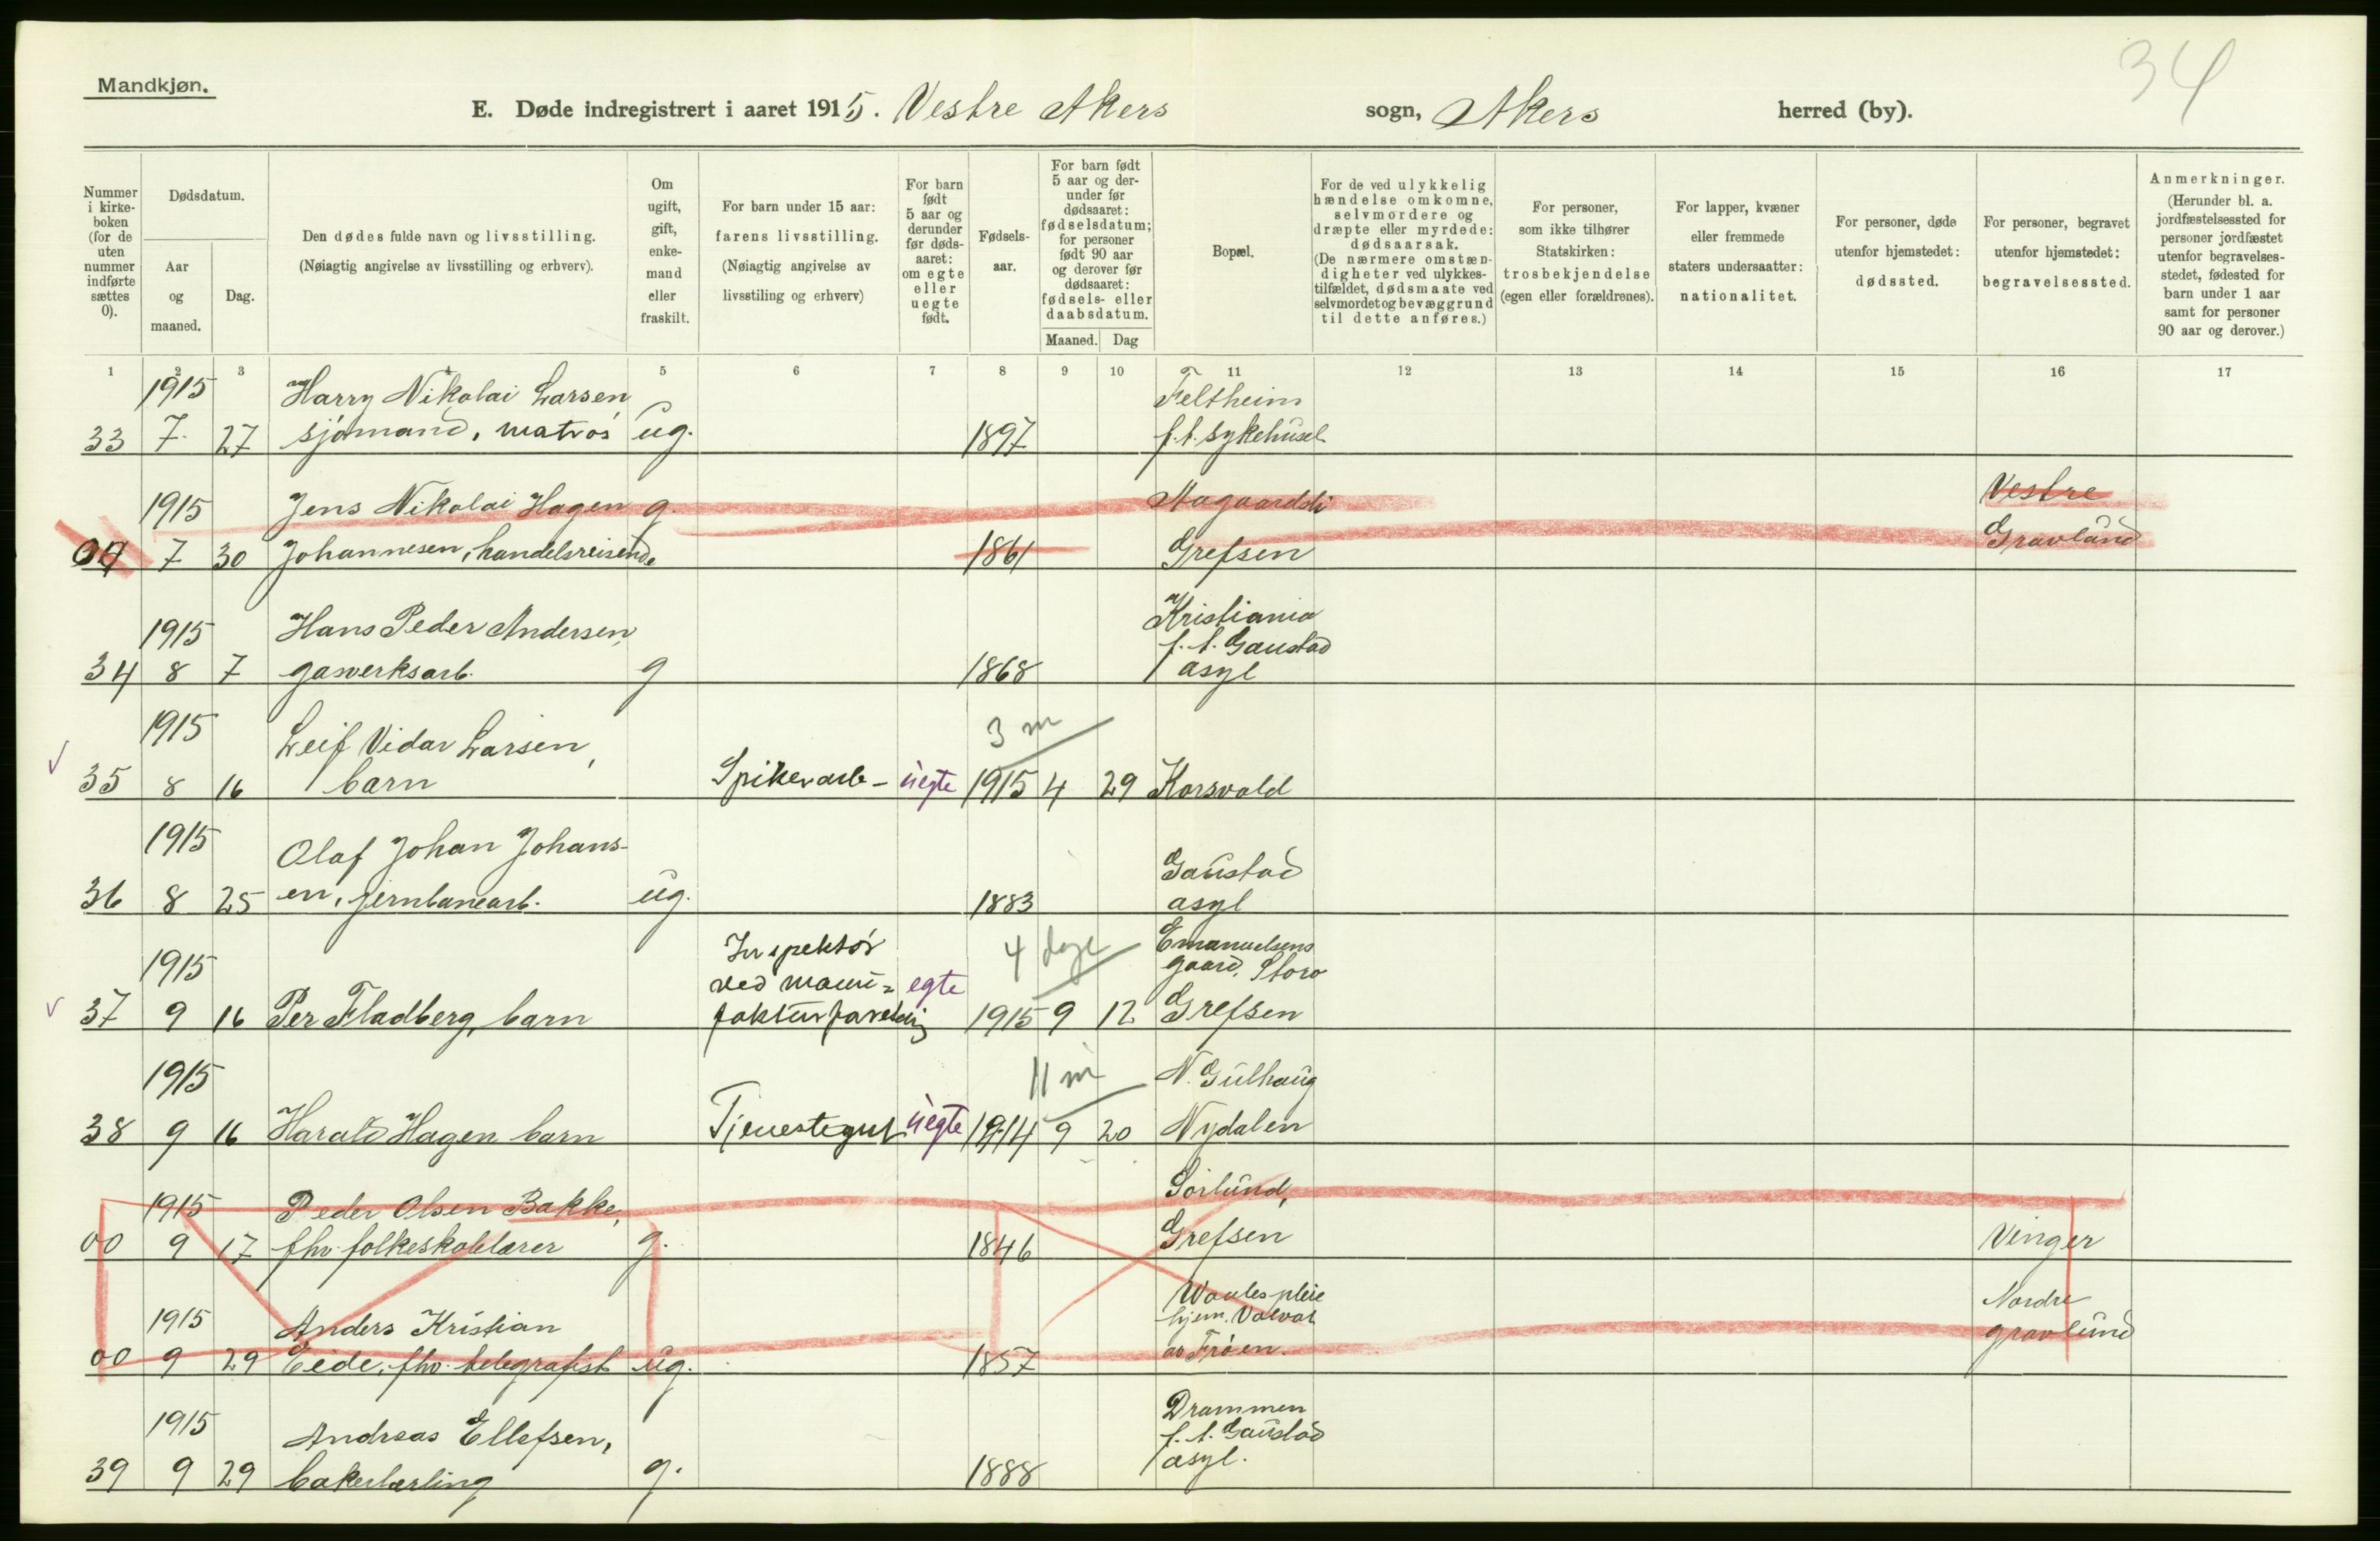 34
Mandkjøn.
E. Døde indregistrert i aaret 1915. Vestre Akers sogn, Akers herred (by).
Nummer i kirke-boken (for de uten nummer indførte sættes 0).
Dødsdatum.
Aar og maaned.
Dag.
Den dødes fulde navn og livsstilling.
(Nøiagtig angivelse av livsstilling og erhverv).
Om ugift, gift, enke-mand eller fraskilt.
For barn under 15 aar: farens livsstilling.
(Nøiagtig angivelse av livsstiling og erhverv)
For barn født 5 aar og derunder før døds-aaret: om egte eller uegte født.
Fødsels-aar.
For barn født 5 aar og der-under før dødsaaret: fødselsdatum; for personer født 90 aar og derover før dødsaaret: fødsels- eller daabsdatum.
Maaned. Dag
Bopæl.
For de ved ulykkelig hændelse omkomne, selvmordere og dræpte eller myrdede: dødsaarsak.
(De nærmere omstæn-digheter ved ulykkes-tilfældet, dødsmaate ved selvmordet og bevæggrund til dette anføres.)
For personer, som ikke tilhører Statskirken: trosbekjendelse (egen eller forældrenes).
For lapper, kvæner eller fremmede staters undersaatter: nationalitet.
For personer, døde utenfor hjemstedet: dødssted.
For personer, begravet utenfor hjemstedet: begravelsessted.
Anmerkninger.
(Herunder bl. a. jordfæstelsessted for personer jordfæstet utenfor begravelses-stedet, fødested for barn under 1 aar samt for personer 90 aar og derover.)
1 2 3 4 5 6 7 8 9 10 11 12 13 14 15 16 17
1915 Harry Nikolai Larsen Feltheim
33 7 27 sjømand, matros ug. 1897 f.t. sykehuset
1915 Jens Nikolai Hagen g. Aagaardsli Vestre
7 30 Johannesen, handelsreisende 1861 Grefsen Gravlund
Kristiania
1915 Hans Peder Andersen, f.t. Gaustad
34 8 7 gasverksarb. g 1868 asyl
1915 Leif Vidar Larsen, 3 m
35 8 16 barn Spikerarb- uegte 1915 4 29 Korsvold
1915 Olaf Johan Johans- Gaustad
36 8 25 en, jernbanearb. ug. 1883 asyl
Inspektør 4 dage Emanuelsens
1915 ved manu= egte gaard, Storo
37 9 16 Per Fladberg, barn 1915 9 12 Grefsen
1915 11 m N. Gulhaug
38 9 16 Harald Hagen barn Tjenestegut uegte 1914 9 20 Nydalen
1915 Peder Olsen Bakke, Sørlund,
00 9 17 fhv. folkeskolelærer g. 1846 Grefsen Vinger
pleie Nordre
1915 Anders Kristian hjem. gravlund
00 9 29 Eide, fhv. telegrafist ug. 1857 Frøen.
Drammen
1915 Andreas Ellefsen, f.t. Gaustad
39 9 29 bakerlærling g. 1888 asyl.